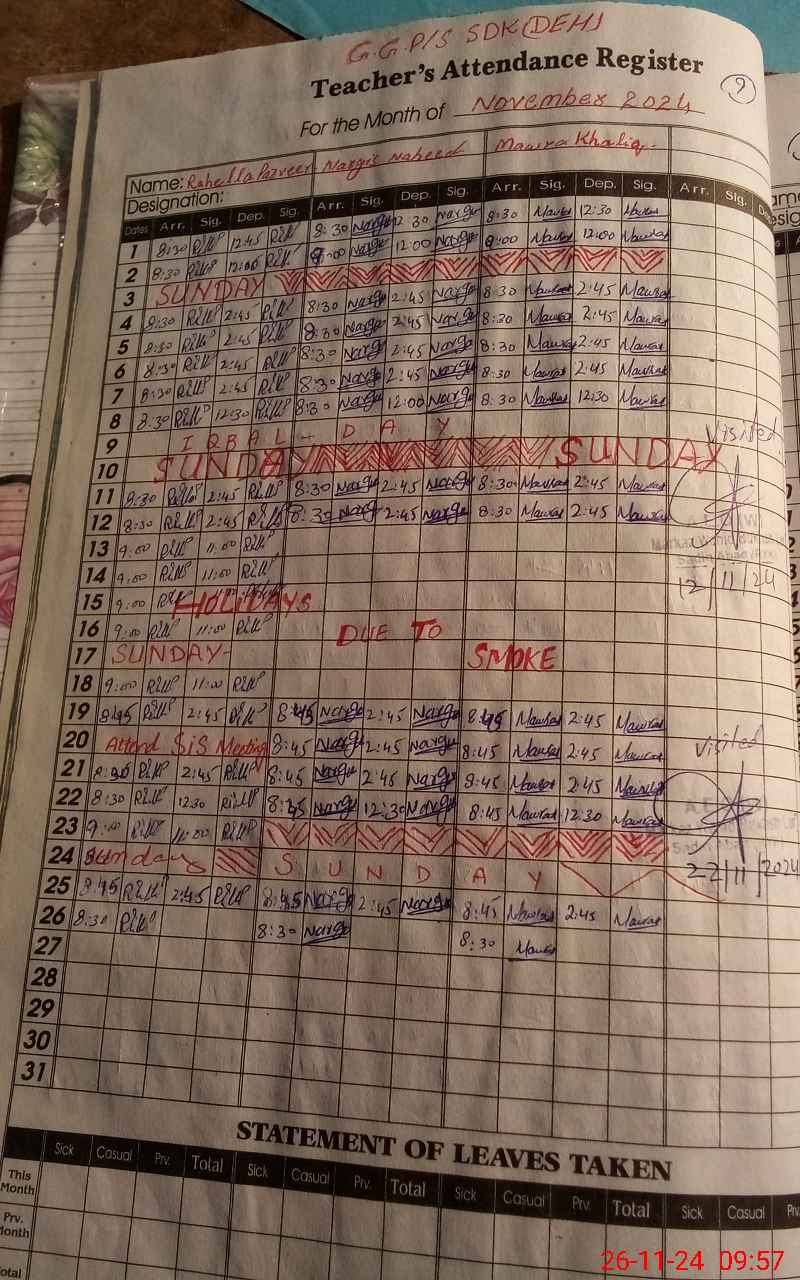 G.G.P/S SDK(DEH)
Teacher's Attendance Register
9
For the Month of November 2024
Name: Rahella Parveen Nargis Naheed Mawra Khaliq
Designation:
Dates Arr. Sig. Dep. Sig. Arr. Sig. Dep. Sig. Arr. Sig. Dep. Sig. Arr. Sig.
1 8:30 12:45 8:30 Nargis 12:30 Nargis 8:30 Mawra 12:30 Mawra
2 8:30 12:00 8:00 Nargis 12:00 Nargis 8:00 Mawra 12:00 Mawra
3 SUNDAY
4 8:30 2:45 8:30 Nargis 2:45 Nargis 8:30 Mawra 2:45 Mawra
5 8:30 2:45 8:30 Nargis 2:45 Nargis 8:30 Mawra 2:45 Mawra
6 8:30 2:45 8:30 Nargis 2:45 Nargis 8:30 Mawra 2:45 Mawra
7 8:30 2:45 8:30 Nargis 2:45 Nargis 8:30 Mawra 2:45 Mawra
8 8:30 12:30 8:30 Nargis 12:00 Nargis 8:30 Mawra 12:30 Mawra
9 IQBAL - DAY
Visited
10 SUNDAY SUNDAY
11 8:30 2:45 8:30 Nargis 2:45 Nargis 8:30 Mawra 2:45 Mawra
12 8:30 2:45 8:30 Nargis 2:45 Nargis 8:30 Mawra 2:45 Mawra
13 9:00 11:00
14 9:00 11:00
12/11/24
15 9:00 HOLIDAYS
16 9:00 11:00 DUE TO
17 SUNDAY- SMOKE
18 9:00 11:00
19 8:45 2:45 8:45 Nargis 2:45 Nargis 8:45 Mawra 2:45 Mawra
20 Attend SIS Meeting 8:45 Nargis 2:45 Nargis 8:45 Mawra 2:45 Mawra
Visited
21 8:30 2:45 8:45 Nargis 2:45 Nargis 8:45 Mawra 2:45 Mawra
22 8:30 12:30 8:45 Nargis 12:30 Nargis 8:45 Mawra 12:30 Mawra
23 9:00 11:00
24 Sunday SUNDAY
22/11/2024
25 8:45 2:45 8:45 Nargis 2:45 Nargis 8:45 Mawra 2:45 Mawra
26 8:30 8:30 Nargis 8:30 Mawra
27
28
29
30
31
STATEMENT OF LEAVES TAKEN
Sick Casual Prv. Total Sick Casual Prv. Total Sick Casual Prv. Total Sick Casual Prv.
This Month
Prv. Month
Total
26-11-24 09:57